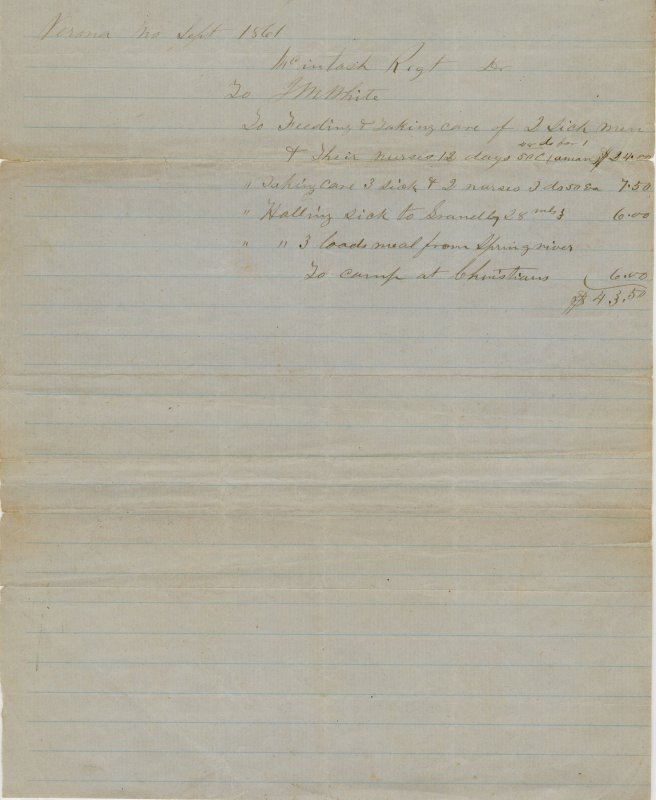 Verona Mo Sept 1861
McIntosh Regt Dr
To J M White
To Feeding & taking care of 2 sick men
& their nurses 12 days 50 C aman $24.00
" taking care 3 sick & 2 nurses 3 do 50 Ea 7.50
" Halling sick to Granelby 28 mls 6.00
" " 3 loads meal from Spring river
To camp at Christians 6.00
$43.50